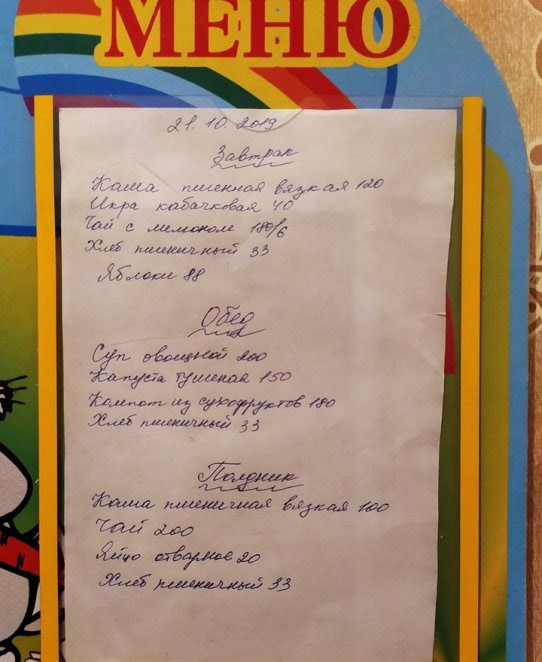 МЕНЮ
21.10.2019
Завтрак
Каша пшенная вязкая 120
Икра кабачковая 40
Чай с лимоном 180/6
Хлеб пшеничный 33
Яблоки 88
Обед
Суп овощной 200
Капуста тушеная 150
Компот из сухофруктов 180
Хлеб пшеничный 33
Полдник
Каша пшеничная вязкая 100
Чай 200
Яйцо отварное 20
Хлеб пшеничный 33